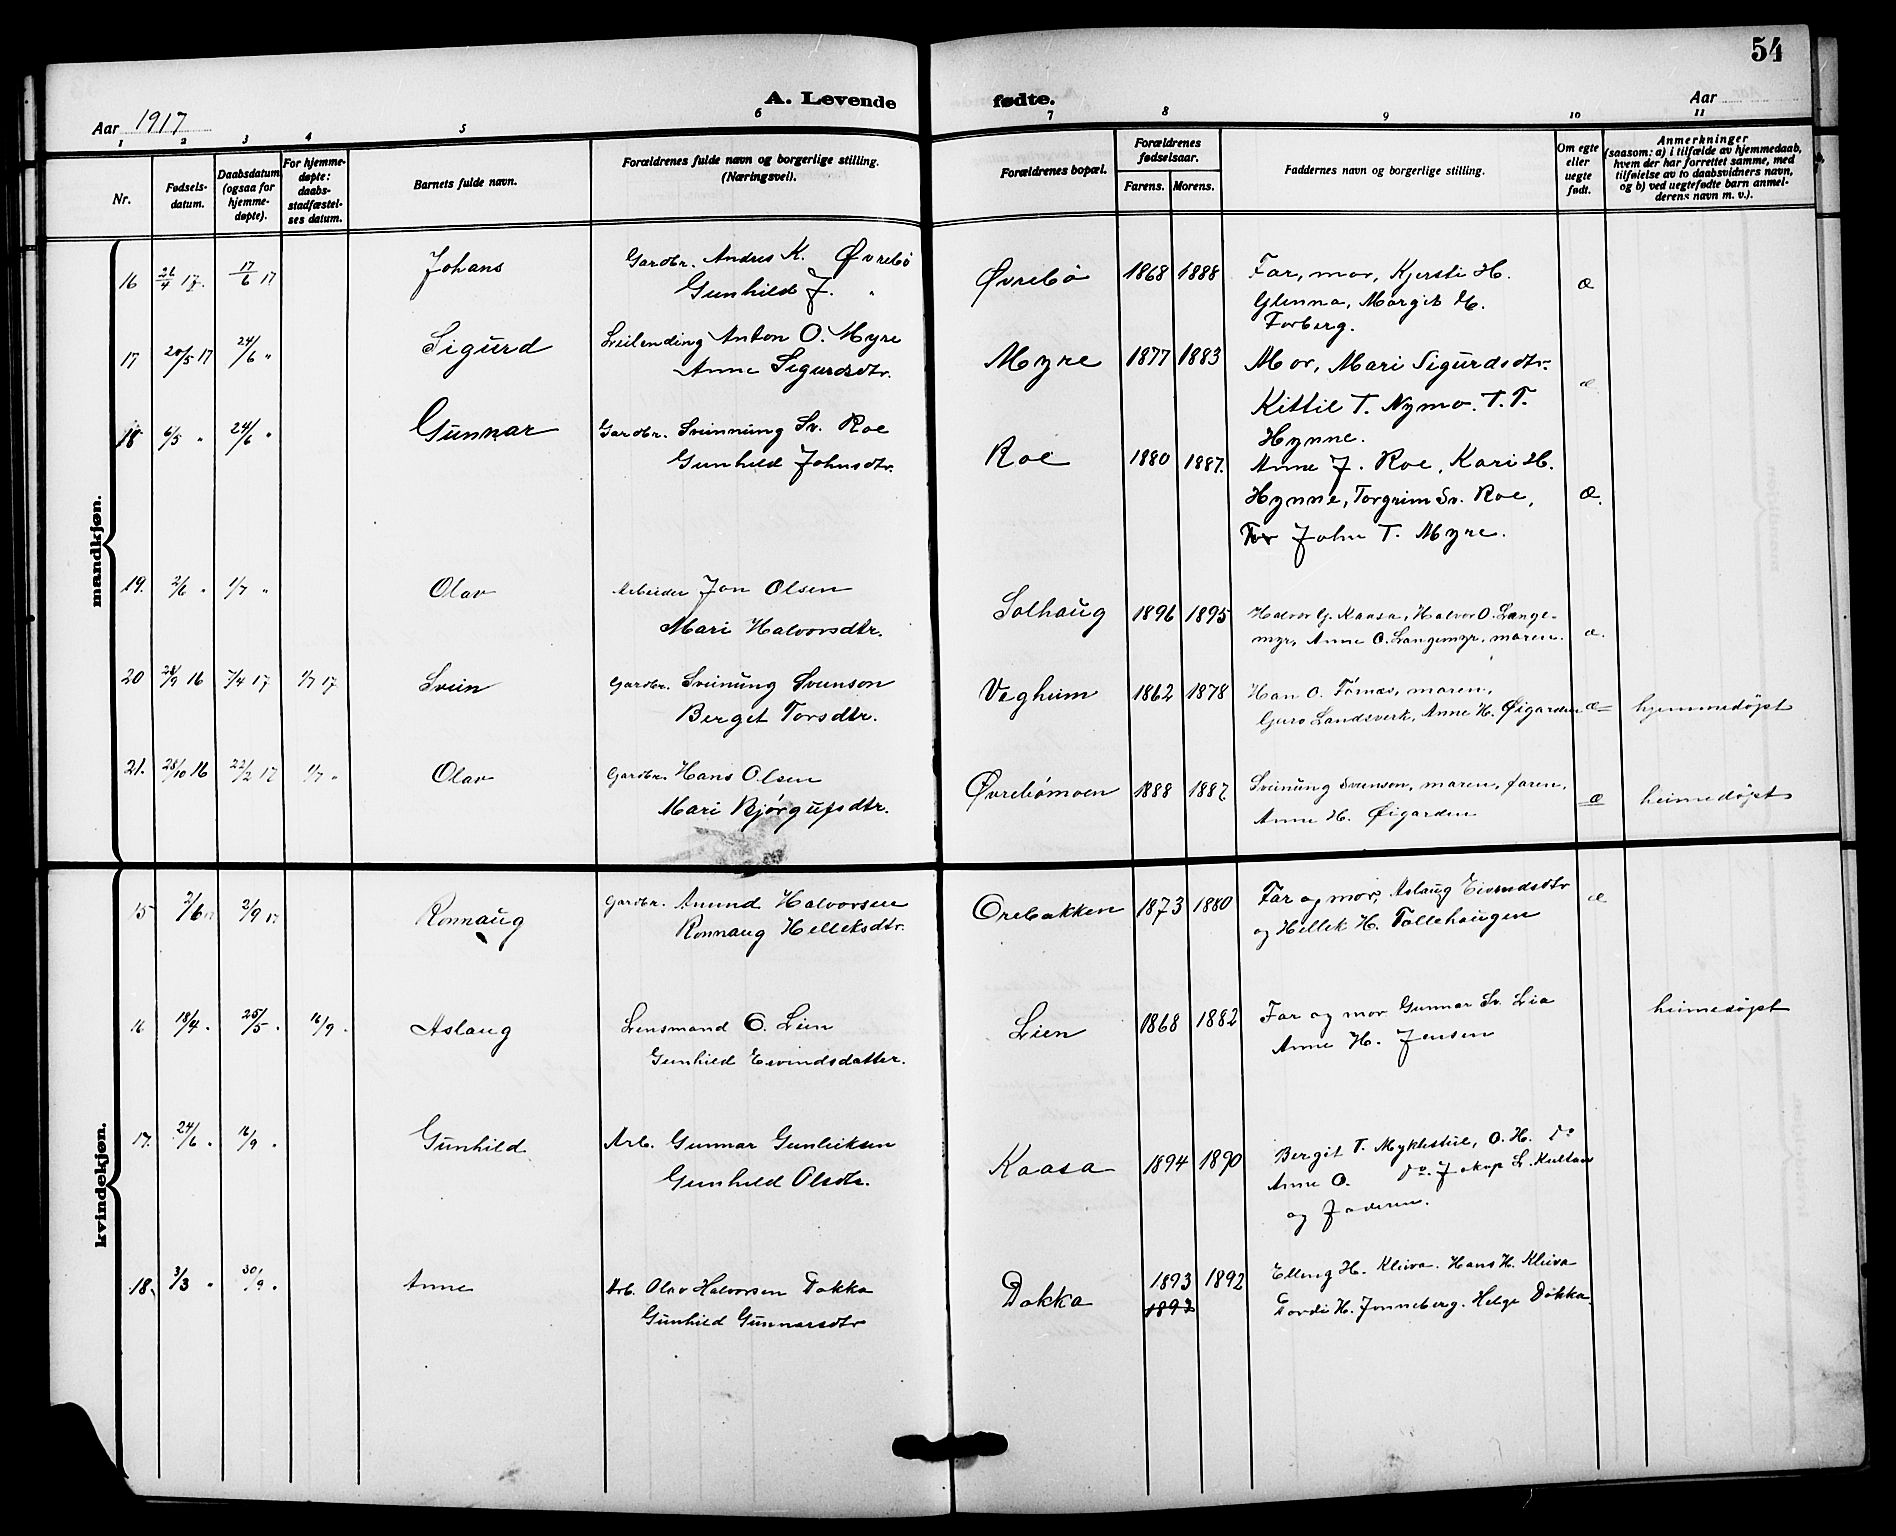 54
A. Levende fødte.
Aar 1917
Aar
1 2 3 4 5 6 7 8 9 10 11
Nr.
Fødsels-
datum.
Daabsdatum
(ogsaa for
hjemme-
døpte).
For hjemme-
døpte:
daabs-
stadfæstel-
ses datum.
Barnets fulde navn.
Forældrenes fulde navn og borgerlige stilling.
(Næringsvei).
Forældrenes bopæl.
Forældrenes
fødselsaar.
Farens. Morens.
Faddernes navn og borgerlige stilling.
Om egte
eller
uegte
født.
Anmerkninger
(saasom: a) i tilfælde av hjemmedaab,
hvem der har forrettet samme, med
tilføielse av to daabsvidners navn,
og b) ved uegtefødte barn anmel-
derens navn m. v.).
mandkjøn.
16 26/4 17. 17/6 17 Johans Gardbr. Andres K. Øvrebö Øvrebö 1868 1888 Far, mor, Kjersti H. æ
Gunhild J. " Glenna, Margit H.
Forberg.
17 20/5 17 24/6 " Sigurd Leilending Anton O. Myre Myre 1877 1883 Mor, Mari Sigurdsdtr. æ
Anne Sigurdsdtr. Kittil T. Nymo. T. T.
Hynne.
18 6/5 " 24/6 " Gunnar Gardbr. Sveinung Sv. Roe Roe 1880 1887. Anne J. Roe, Kari H. æ.
Gunhild Johnsdtr. Hynne, Torgrim Sv. Roe,
John T. Myre.
19. 2/6 " 1/7 " Olav Arbeider Jon Olsen Solhaug 1896 1895 Halvor G. Kaasa, Halvor O. Lange-
Mari Halvorsdtr. myr, Anne O. Langemyr, moren. æ.
20 28/9 16 7/4 17 1/7 17 Svein Gardbr. Sveinung Svenson Vegheim 1862 1878 Han O. Tömes, moren,
Berget Torsdtr. Guro Landsverk, Anne H. Øigarden æ hjemmedøpt
21. 28/10 16 22/2 17 1/7 " Olav Gardbr. Hans Olsen Øvrebömoen 1888 1887 Sveinung Svenson, moren, faren, æ heimedøpt
Mari Bjørgufsdtr. Anne H. Øigarden
kvindekjøn.
15 2/6 17 2/9 17 Ronnaug Gardbr. Amund Halvorsen Orebakken 1873 1880 Far og mor, Aslaug Eivendsdtr æ
Ronnaug Helleksdtr. og Hellek H. Tollehaugen
16 18/4 " 25/5 " 16/9 " Aslaug Lensmand O. Lien Lien 1868 1882 Far og mor Gunnar Sv. Lia heimedøpt
Gunhild Eivindsdatter. Anne H. Jensen
17. 24/6 " 16/9 " Gunhild Arb. Gunnar Gunleiksen Kaasa 1894 1890 Bergit T. Myklestul, O. H. do
Gunhild Olsdtr. Anne O. do. Jakop L.
og faderen.
18. 3/3 " 30/9 " Anne Arb. Olav Halvorsen Dokka Dokka 1893 1892 Elling H. Kleiva. Hans H. Kleiva
Gunhild Gunnarsdtr 1892 Tordi H. Jønneberg. Helge Dokka.